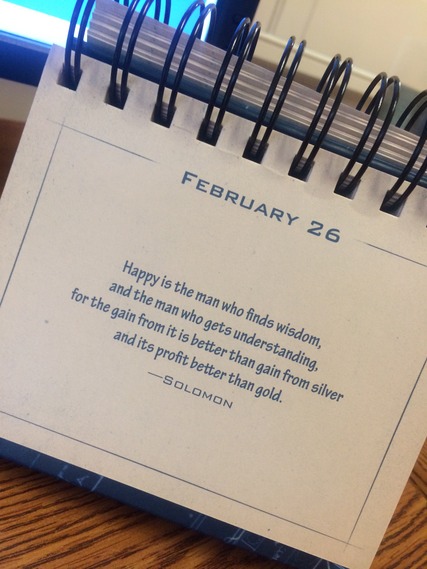 FEBRUARY 26
Happy is the man who finds wisdom,
and the man who gets understanding,
for the gain from it is better than gain from silver
and its profit better than gold.
—SOLOMON